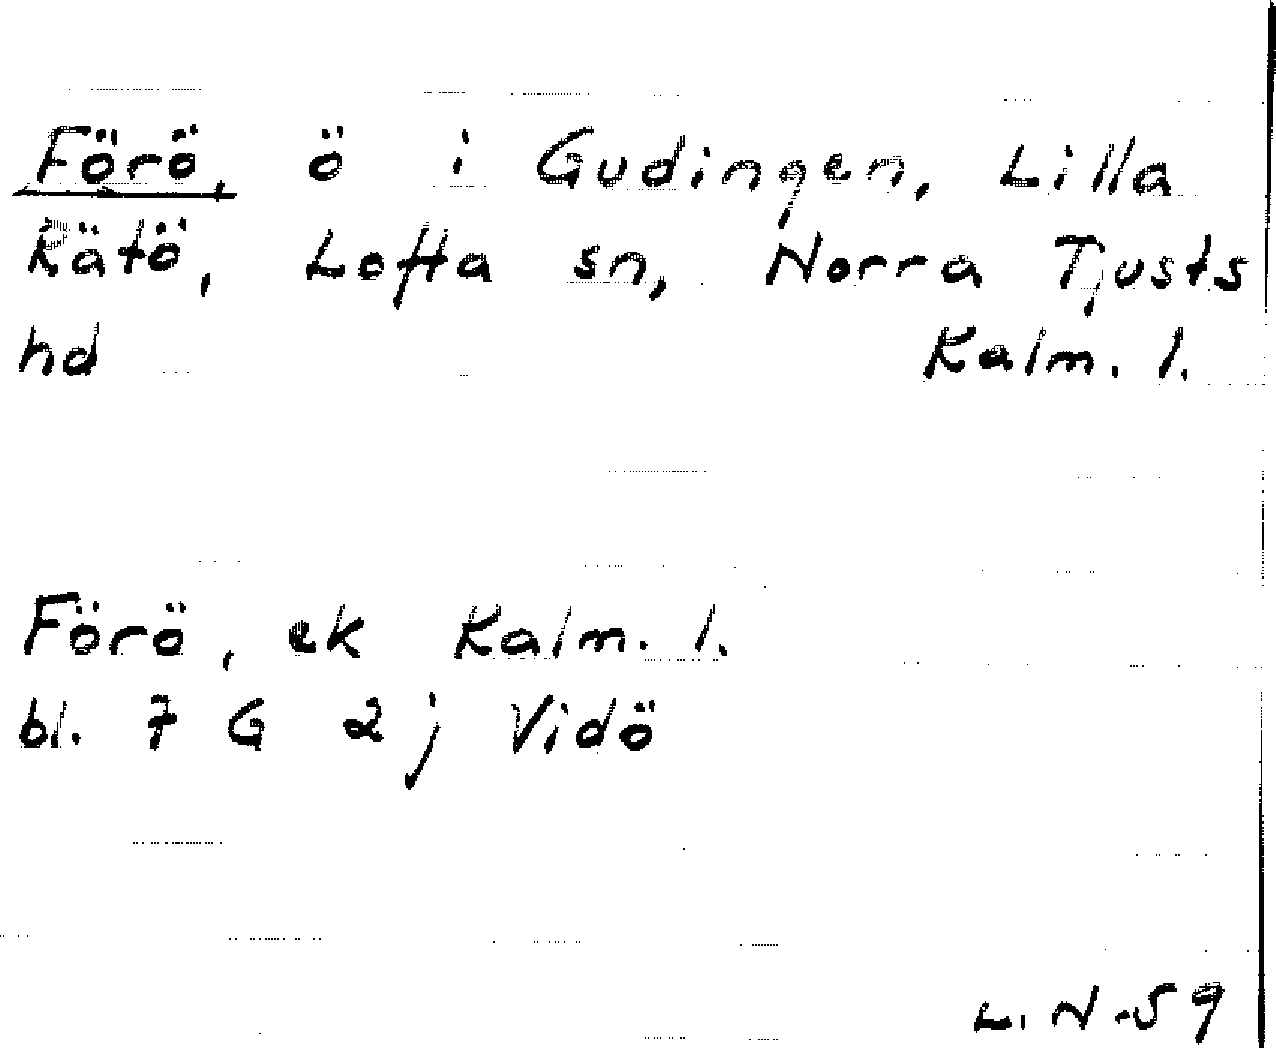 Förö, ö i Gudingen, Lilla
Rätö, Lofta sn, Norra Tjusts
hd Kalm. l.
Förö, ek Kalm. l.
bl. 7 G 2 j Vidö
L. N -59